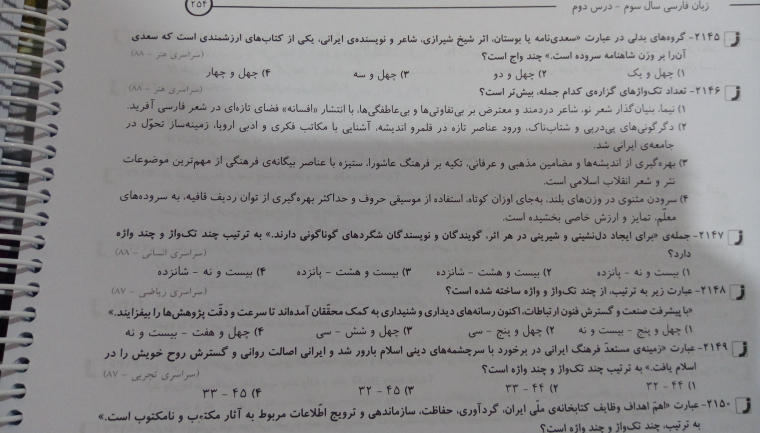 زبان فارسی سال سوم - درس دوم
۲۵۴
۲۱۴۵- گروه‌های بدلی در عبارت «سعدی‌نامه یا بوستان، اثر شیخ شیرازی، شاعر و نویسنده‌ی ایرانی، یکی از کتاب‌های ارزشمندی است که سعدی
آن‌را بر وزن شاهنامه سروده است.» چند واج است؟ (سراسری هنر - ۸۸)
۱) چهل و یک ۲) چهل و دو ۳) چهل و سه ۴) چهل و چهار
۲۱۴۶- تعداد تک‌واژهای گزاره‌ی کدام جمله، بیش‌تر است؟ (سراسری هنر - ۸۸)
۱) نیما، بنیان‌گذار شعر نو، شاعر دردمند و معترض بر بی‌تفاوتی‌ها و بی‌عاطفگی‌ها، با انتشار «افسانه» فضای تازه‌ای در شعر فارسی آفرید.
۲) دگرگونی‌های پی‌درپی و شتاب‌ناک، ورود عناصر تازه در قلمرو اندیشه، آشنایی با مکاتب فکری و ادبی اروپا، زمینه‌ساز تحوّل در
جامعه‌ی ایرانی شد.
۳) بهره‌گیری از اندیشه‌ها و مضامین مذهبی و عرفانی، تکیه بر فرهنگ عاشورا، ستیزه با عناصر بیگانه‌ی فرهنگی از مهم‌ترین موضوعات
نثر و شعر انقلاب اسلامی است.
۴) سرودن مثنوی در وزن‌های بلند، به‌جای اوزان کوتاه، استفاده از موسیقی حروف و حداکثر بهره‌گیری از توان ردیف قافیه، به سروده‌های
معلّم، تمایز و ارزش خاصی بخشیده است.
۲۱۴۷- جمله‌ی «برای ایجاد دل‌نشینی و شیرینی در هر اثر، گویندگان و نویسندگان شگردهای گوناگونی دارند.» به ترتیب چند تک‌واژ و چند واژه
دارد؟ (سراسری انسانی - ۸۸)
۱) بیست و نه - پانزده ۲) بیست و هشت - شانزده ۳) بیست و هشت - پانزده ۴) بیست و نه - شانزده
۲۱۴۸- عبارت زیر به ترتیب، از چند تک‌واژ و واژه ساخته شده است؟ (سراسری ریاضی - ۸۷)
«با پیشرفت صنعت و گسترش فنون ارتباطات، اکنون رسانه‌های دیداری و شنیداری به کمک محقّقان آمده‌اند تا سرعت و دقّت پژوهش‌ها را بیفزایند.»
۱) چهل و پنج - بیست و نه ۲) چهل و پنج - سی ۳) چهل و شش - سی ۴) چهل و هفت - بیست و نه
۲۱۴۹- عبارت «زمینه‌ی مستعدّ فرهنگ ایرانی در برخورد با سرچشمه‌های دینی اسلام بارور شد و ایرانی اصالت روانی و گسترش روح خویش را در
اسلام یافت.» به ترتیب چند تک‌واژ و چند واژه است؟ (سراسری تجربی - ۸۷)
۱) ۴۴ - ۳۲ ۲) ۴۴ - ۳۳ ۳) ۴۵ - ۳۲ ۴) ۴۵ - ۳۳
۲۱۵۰- عبارت «اهمّ اهداف وظایف کتابخانه‌ی ملّی ایران، گردآوری، حفاظت، سازماندهی و ترویج اطّلاعات مربوط به آثار مکتوب و نامکتوب است.»
به ترتیب، چند تک‌واژ و چند واژه است؟